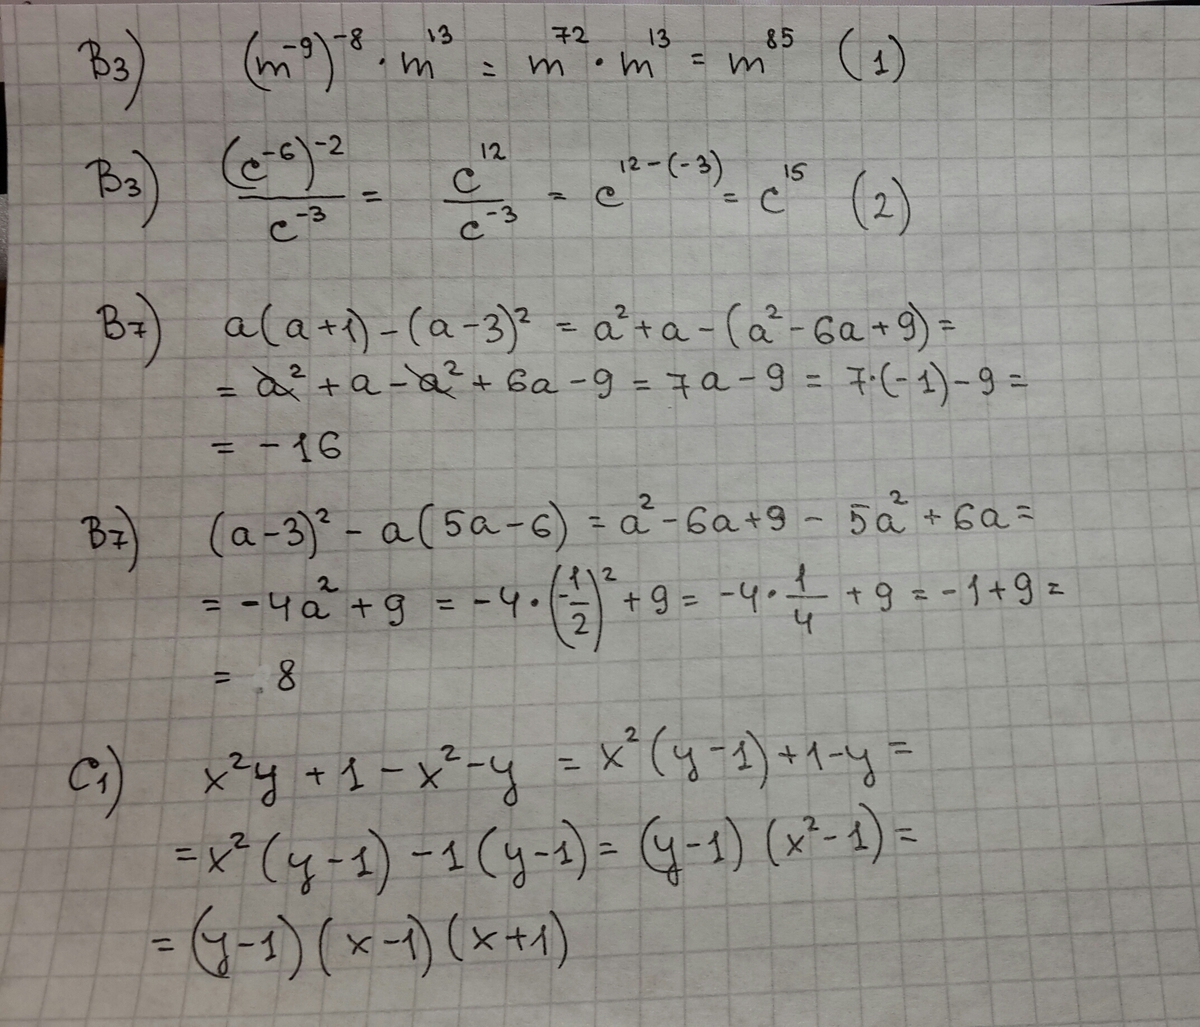 В3) (m⁻⁹)⁻⁸ · m¹³ = m⁷² · m¹³ = m⁸⁵ (1)
В3) (c⁻⁶)⁻²/c⁻³ = c¹²/c⁻³ = c¹²⁻⁽⁻³⁾ = c¹⁵ (2)
В7) a(a+1)-(a-3)² = a²+a-(a²-6a+9)=
= a² + a - a² + 6a - 9 = 7a - 9 = 7·(-1) - 9 =
= -16
В7) (a-3)² - a(5a-6) = a² - 6a+9 - 5a² + 6a =
= -4a² + 9 = -4·(-1/2)² + 9 = -4·1/4 + 9 = -1+9 =
= 8
С1) x²y + 1 - x² - y = x²(y-1)+1-y =
= x²(y-1) - 1(y-1) = (y-1)(x²-1) =
= (y-1)(x-1)(x+1)